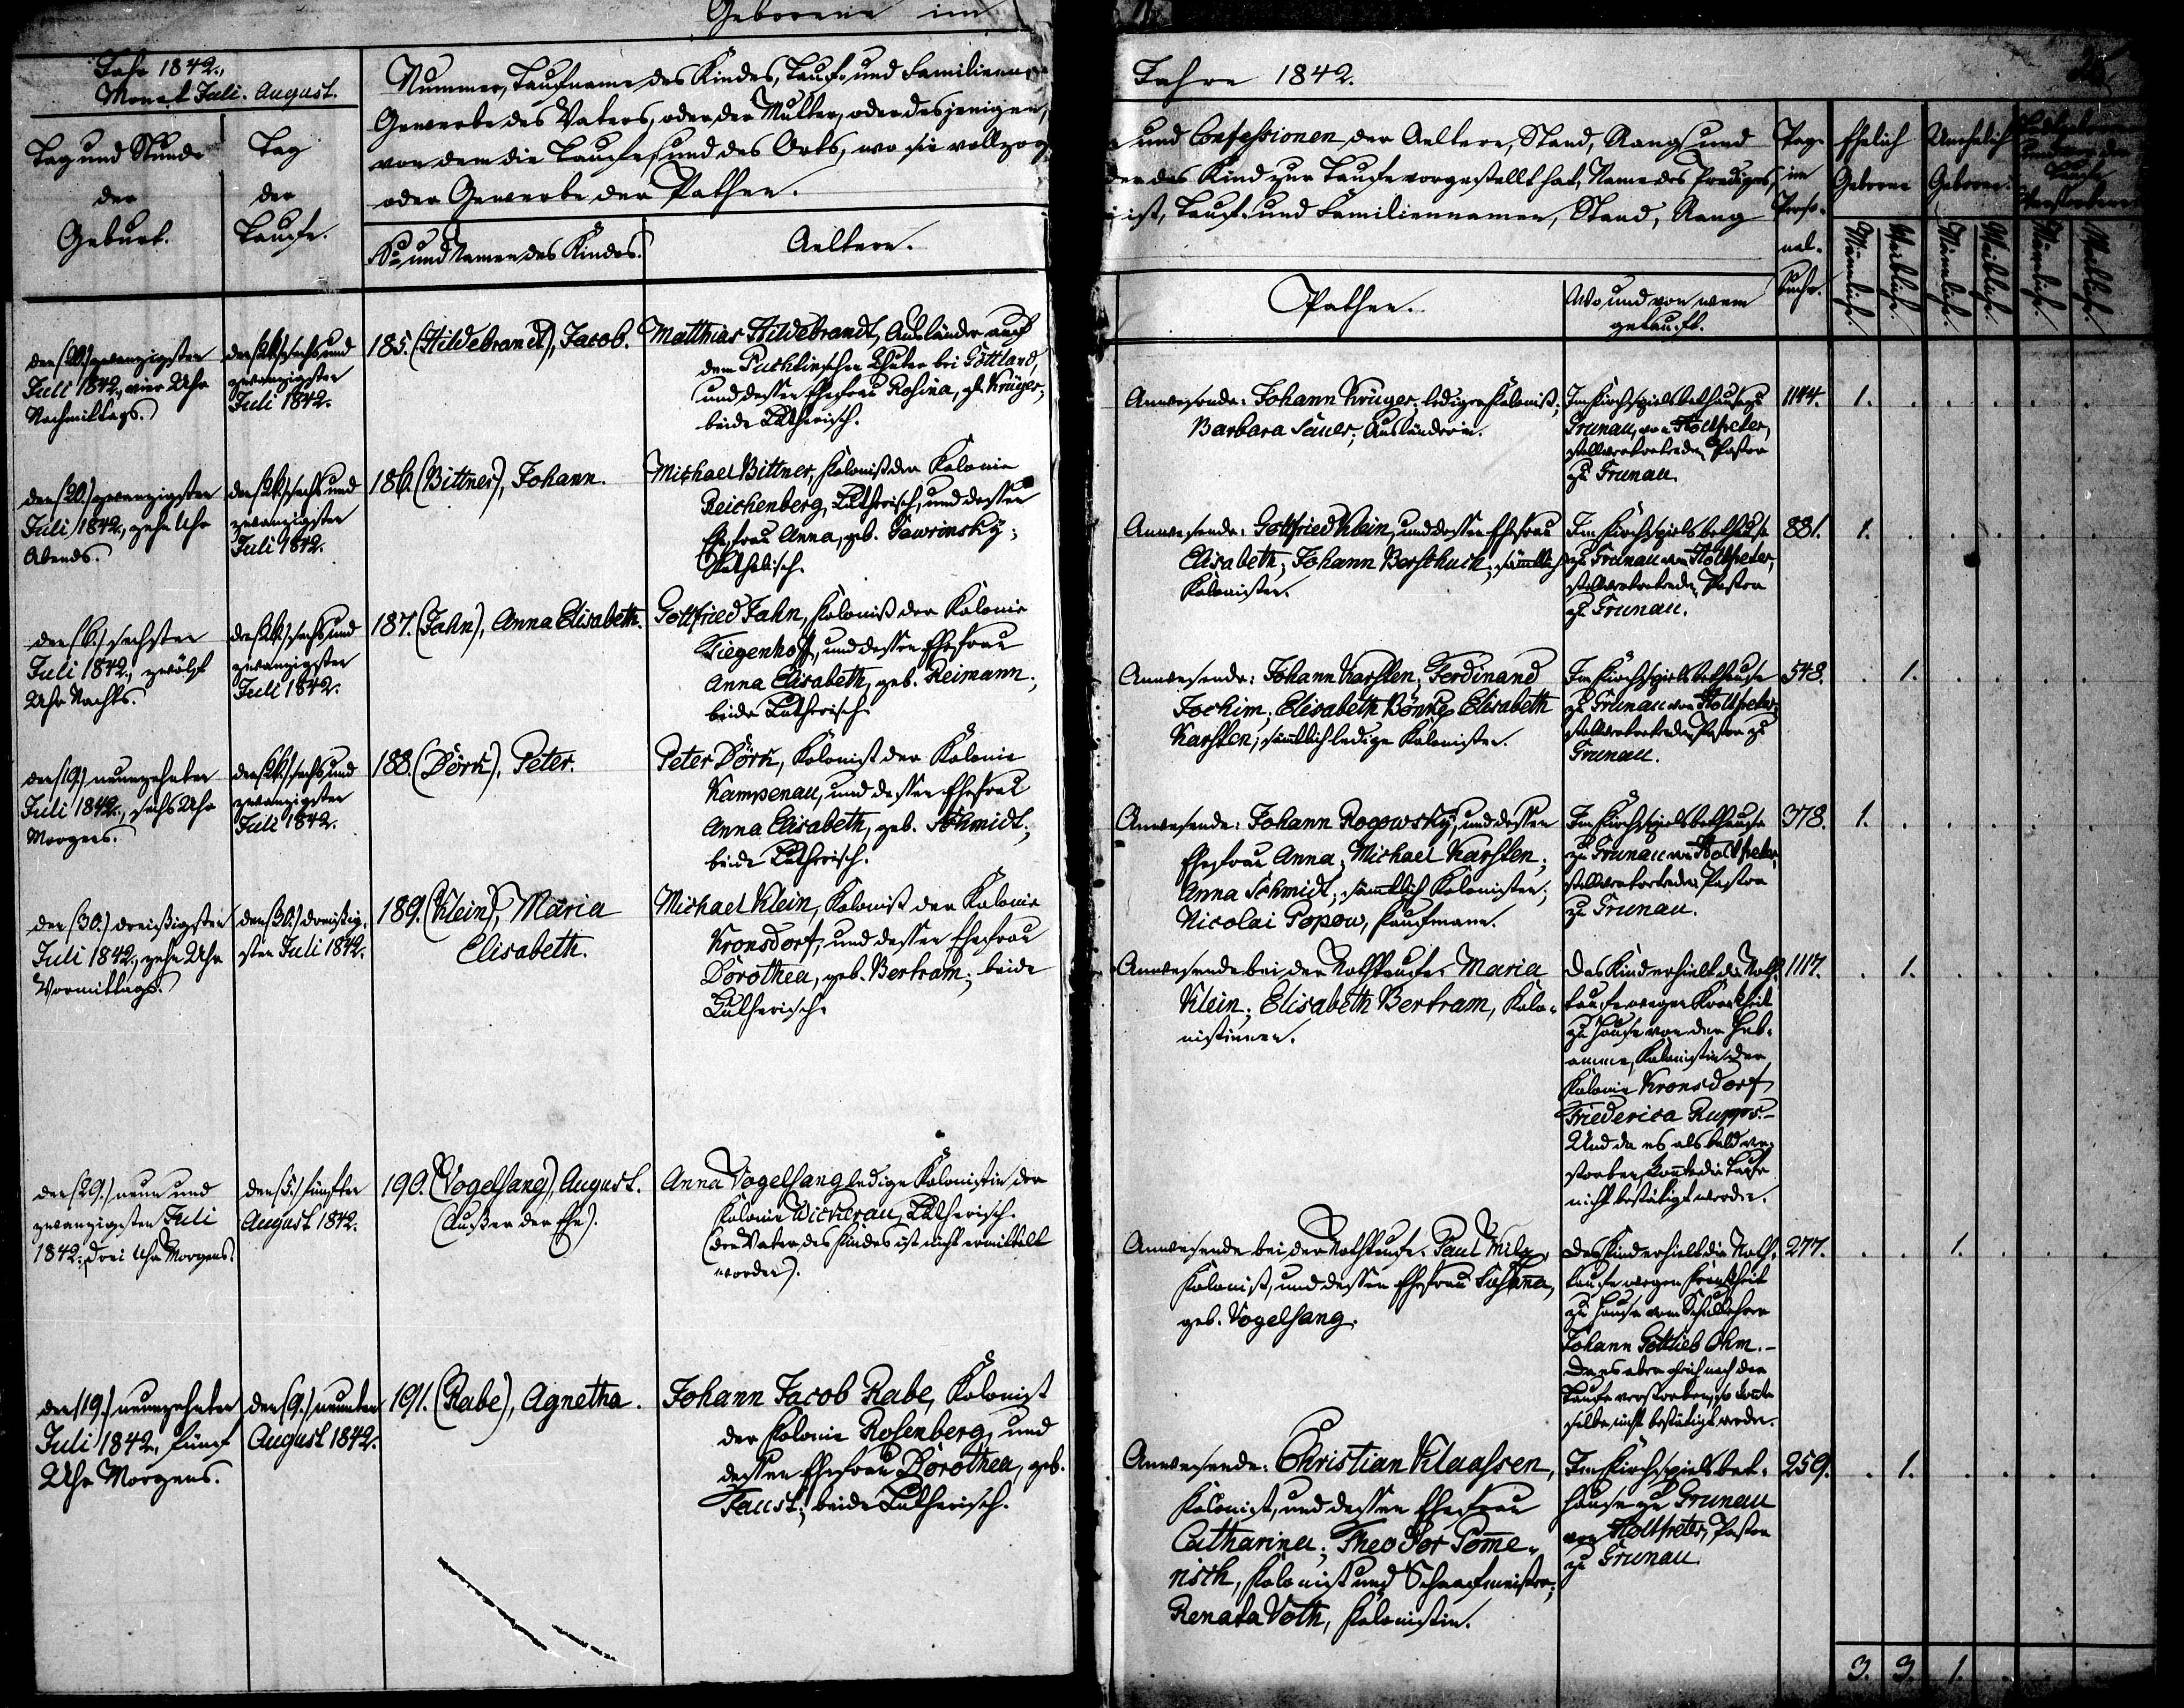 Geborene im
Jahr 1842.,
Monat Juli. August.
Tag und Stunde
der
Geburt.
Tag
der
Taufe.
Nummer, Taufname des Kindes, Tauf- und Familienna-
Gewerbe des Vaters, oder der Mutter, oder desjenigen,
von dem die Taufe, und des Orts, wo sie vollzog
oder Gewerbe der Pathen.
No und Namen des Kindes.
Aeltern.
den (20.) zwanzigsten
Juli 1842., vier Uhr
Nachmittags.
den (26.) sechs und
zwanzigsten
Juli 1842.
185. (Hildebrandt), Jacob.
Matthias Hildebrandt, Ausländer auf
dem bei Gottland,
und dessen Ehefrau Rosina, geb. Krüger;
beide Lutherisch.
den (20.) zwanzigsten
Juli 1842., zehn Uhr
Abends.
den (26.) sechs und
zwanzigsten
Juli 1842.
186. (Bittner), Johann.
Michael Bittner, Kolonist der Kolonie
Reichenberg, Lutherisch, und dessen
Ehefrau Anna, geb. Gawrinsky;
Katholisch.
den (6.) sechsten
Juli 1842., zwölf
Uhr Nachts.
den (26.) sechs und
zwanzigsten
Juli 1842.
187. (Jahn), Anna Elisabeth.
Gottfried Jahn, Kolonist der Kolonie
Tiegenhoff, und dessen Ehefrau
Anna Elisabeth, geb. Reimann;
beide Lutherisch.
den (19.) neunzehnten
Juli 1842., sechs Uhr
Morgens.
den (26.) sechs und
zwanzigsten
Juli 1842.
188. (Dörk), Peter.
Peter Dörk, Kolonist der Kolonie
Kampenau, und dessen Ehefrau
Anna Elisabeth, geb. Schmidt;
beide Lutherisch.
den (30.) dreißigsten
Juli 1842., zehn Uhr
Vormittags.
den (30.) dreißig-
sten Juli 1842.
189. (Klein), Maria
Elisabeth.
Michael Klein, Kolonist der Kolonie
Kronsdorf, und dessen Ehefrau
Dorothea, geb. Bertram; beide
Lutherisch.
den (29.) neun und
zwanzigsten Juli
1842., drei Uhr Morgens.
den (5.) fünften
August 1842.
190. (Vogelsang), August.
(Außer der Ehe).
Anna Vogelsang ledige Kolonistin der
Kolonie Wickerau, Lutherisch.
(Der Vater des Kindes ist nicht ermittelt
worden).
den (19.) neunzehnten
Juli 1842., fünf
Uhr Morgens.
den (9.) neunten
August 1842.
191. (Rabe), Agnetha.
Johann Jacob Rabe, Kolonist
der Kolonie Rosenberg, und
dessen Ehefrau Dorothea, geb.
Faust; beide Lutherisch.
Jahre 1842.
und Confessionen der Aeltern, Stand, Rang und
der das Kind zur Taufe vorgestellt hat, Name des Predigers,
ist, Tauf- und Familiennamen, Stand, Rang
Pathen.
Wo und von wem
getauft.
Pag.
im
Perso-
nal-
buche.
Ehelich
Geborne
Unehelich
Geborne.
Männlich.
Weiblich.
Männlich.
Weiblich.
Männlich.
Weiblich.
Anwesende: Johann Krüger, lediger Kolonist;
Barbara Sauer, Ausländerin.
Im Kirchspielsbethause zu
Grunau, von Holtfreter,
stellvertretender Pastor
zu Grunau.
1144. 1.
Anwesende: Gottfried Klein, und dessen Ehefrau
Elisabeth; Johann Borschuck; sämtlich
Kolonisten.
Im Kirchspielsbethause
zu Grunau von Holtfreter,
stellvertretender Pastor
zu Grunau.
881. 1.
Anwesende: Johann Karsten; Ferdinand
Jochim; Elisabeth Bönke, Elisabeth
Karsten; sämtlich ledige Kolonisten.
Im Kirchspielsbethause
zu Grunau von Holtfreter,
stellvertretender Pastor zu
Grunau.
548. 1.
Anwesende: Johann Rogowsky, und dessen
Ehefrau Anna; Michael Karsten;
Anna Schmidt; sämtlich Kolonisten;
Nicolai Popow, Kaufmann.
Im Kirchspielsbethause
zu Grunau von Holtfreter,
stellvertretender Pastor
zu Grunau.
378. 1.
Anwesende bei der Nothtaufe: Maria
Klein; Elisabeth Bertram, Kolo-
nistinnen.
Das Kind erhielt die Noth-
taufe wegen Krankheit
zu Hause von der Heb-
amme, Kolonistin der
Kolonie Kronsdorf
Friederica Rupps.-
Und da es alsbald ver-
storben, konnte die Taufe
nicht bestätigt werden.
1117. 1.
Anwesende bei der Nothtaufe: Paul Milz,
Kolonist, und dessen Ehefrau Susanna,
geb. Vogelsang.
Das Kind erhielt die Noth-
taufe wegen Krankheit
zu Hause vom Schullehrer
Johann Gottlieb Ohm.-
Da es aber gleich nach der
Taufe verstorben, so konnte
selbe nicht bestätigt werden.
277. 1.
Anwesende: Christian Klaassen,
Kolonist, und dessen Ehefrau
Catharina; Theodor Pome-
nisch, Kolonist und Schaafmeister;
Renata Voth, Kolonistin.
Im Kirchspielsbet-
hause zu Grunau
von Holtfreter, Pastor
zu Grunau.
259. 1.
3. 3. 1.